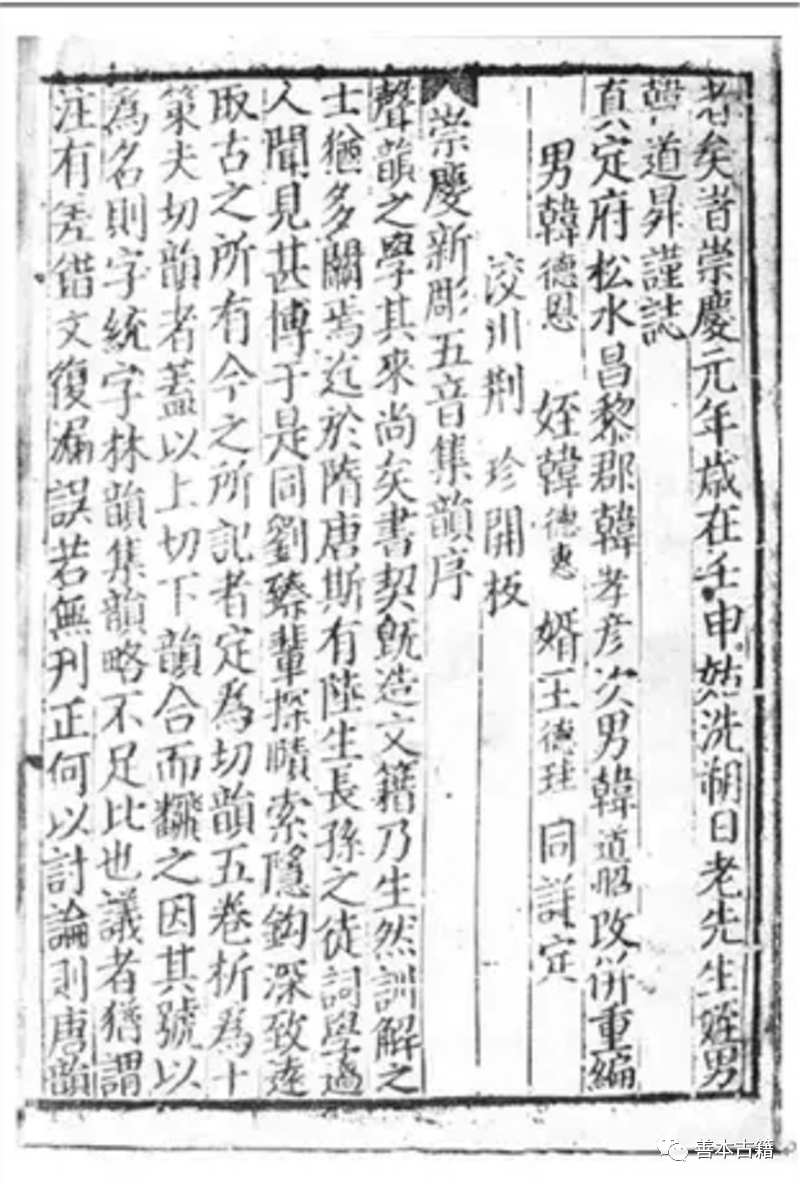 老矣旹崇慶元年歲在壬申姑洗朔日老先生姪男
韓道昇謹誌
真定府松水昌黎郡韓孝彥次男韓道昭改併重編
男韓德恩 姪韓德惠 婿王德珪 同詳定
洨川荆 珍開板
崇慶新彫五音集韻序
聲韻之學其來尚矣書契旣造文籍乃生然訓解之
士猶多闕焉迄於隋唐斯有陸生長孫之徒詞學過
人聞見甚博于是同劉臻輩探賾索隱鈎深致遠
取古之所有今之所記者定為切韻五卷析為十
策夫切韻者蓋以上切下韻合而翻之因其號以
為名則字統字林韻集韻略不足比也議者猶謂
注有差錯文復漏誤若無刋正何以討論則唐韻
善本古籍